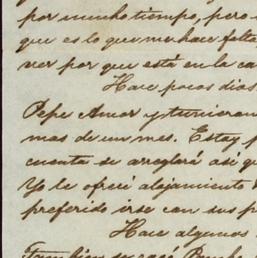 por mucho tiempo, pero
que es lo que me hace falta
ver por que está en la ca
Hace pocos dias
Pepe Amor y tuvieron
mas de un mes. Estoy p
cuenta se arreglará asi q
Yo le ofreci alojamiento
preferido irse con sus p
Hace algunos
Tambien se casó